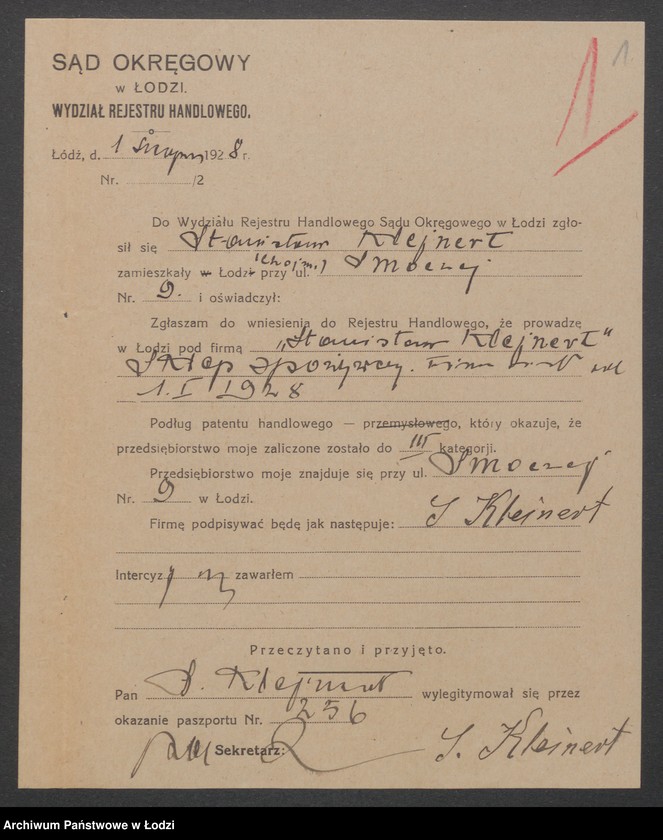 1 1.
SĄD OKRĘGOWY
w ŁODZI.
WYDZIAŁ REJESTRU HANDLOWEGO.
Łódź, d. 1 sierpnia 1928 r.
Nr. /2
Do Wydziału Rejestru Handlowego Sądu Okręgowego w Łodzi zgło-
sił się Stanisław Klejnert
zamieszkały w Łodzi (Chojny) przy ul. Smoczej
Nr. 9. i oświadczył:
Zgłaszam do wniesienia do Rejestru Handlowego, że prowadzę
w Łodzi pod firmą „Stanisław Klejnert"
Sklep spożywczy. Firma istn. od
1. I 1928
Podług patentu handlowego — przemysłowego, który okazuje, że
przedsiębiorstwo moje zaliczone zostało do III kategorji.
Przedsiębiorstwo moje znajduje się przy ul. Smoczej
Nr. 9 w Łodzi.
Firmę podpisywać będę jak następuje: S Kleinert
Intercyzy n zawarłem
Przeczytano i przyjęto.
Pan S. Klejnert wylegitymował się przez
okazanie paszportu Nr. 256
Sekretarz:
S. Kleinert
Archiwum Państwowe w Łodzi